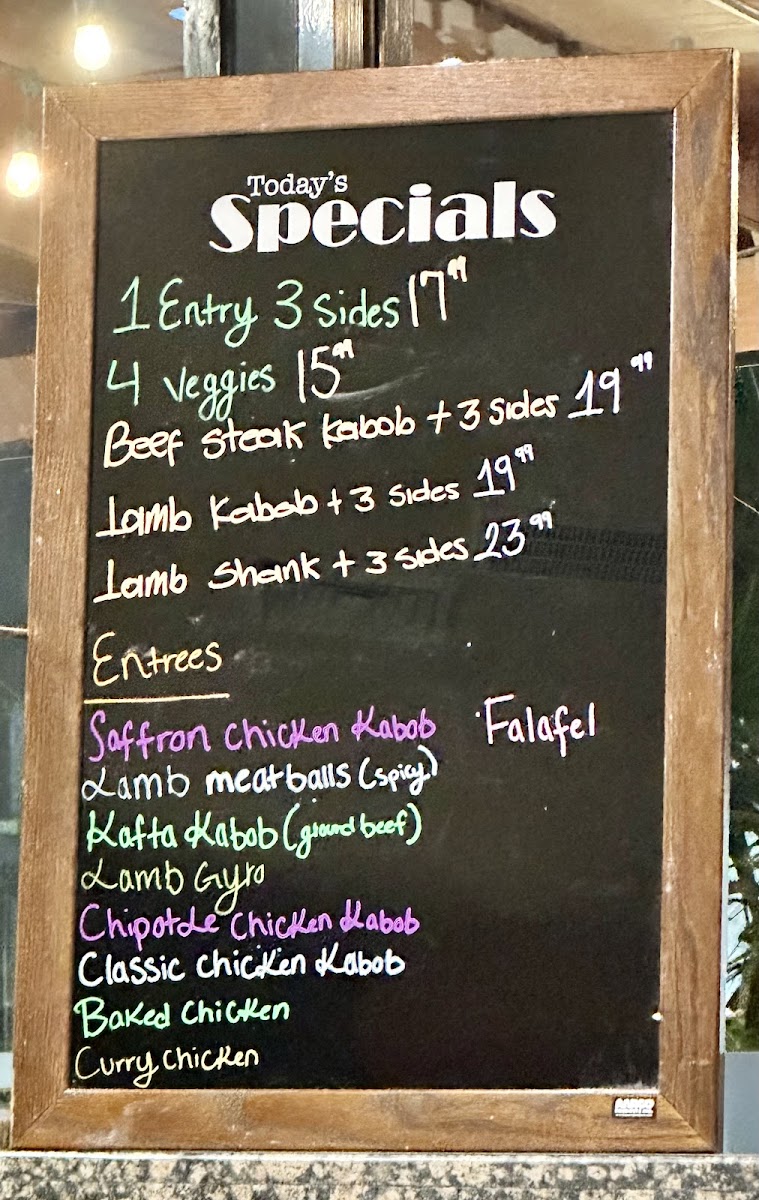 Today's
Specials
1 Entry 3 Sides 17.99
4 Veggies 15.99
Beef steak kabob + 3 sides 19.99
Lamb Kabab + 3 sides 19.99
Lamb Shank + 3 sides 23.99
Entrees
Saffron Chicken Kabob
Falafel
Lamb meatballs (spicy)
Kafta Kabob (ground beef)
Lamb Gyro
Chipotle Chicken Kabob
Classic Chicken Kabob
Baked Chicken
Curry Chicken